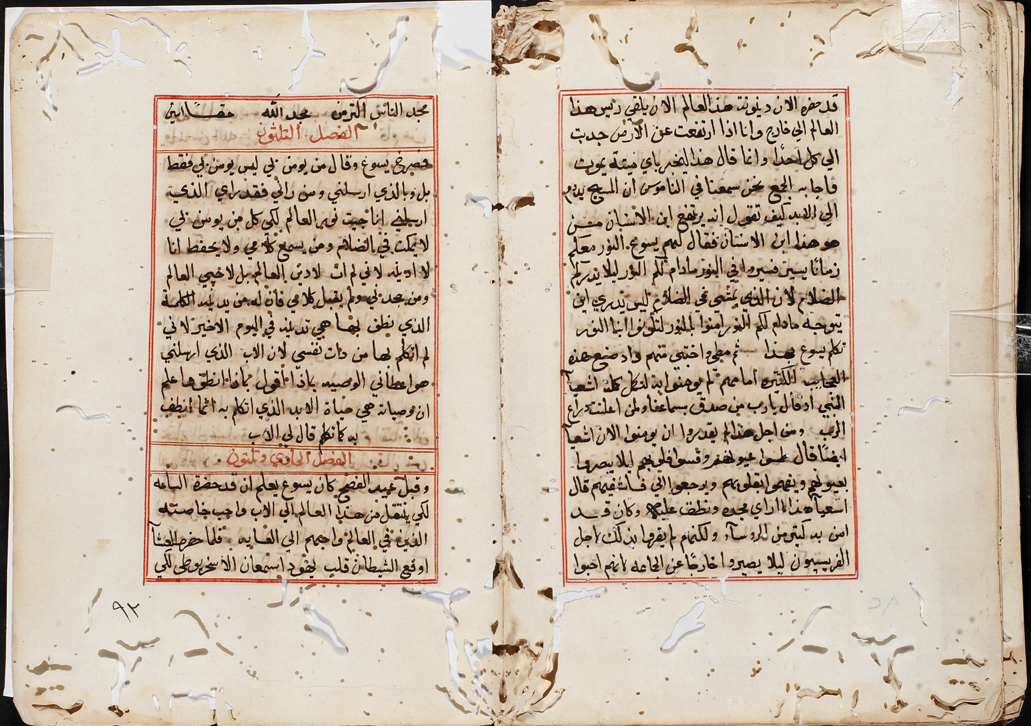 قد حضره الان دينونة هذا العالم الان يلقي ريس هذا
العالم الى خارج وانا اذا ارتفعت عن الارض جدبت
الي كل احدا وانما قال هذا ليخبر باي ميتة يموت
فاجابه الجمع نحن سمعنا في الناموس ان المسيح يدوم
الي الابد كيف تقول انه يرتفع ابن الانسان من
هو هذا ابن الانسان فقال لهم يسوع النور معكم
زمانا يسير فسيروا في النور مادام لكم النور ليلا يدرككم
الضلام لان الذي يمشي في الضلام ليس يدري اين
يتوجه مادام لكم النور امنوا بالنور لتكونوا ابنا النور
تكلم يسوع بهذا ثم مظي واختبي منهم واد صنع هذه
العجايب الكتيره امامهم لم يومنوا به لتكمل كلمة اشعيا
النبي اد قال يارب من صدق بسماعنا ولمن اعلنت دراع
الرب ومن اجل هذا لم يقدروا ان يومنوا لان اشعيا
ايضا قال طمسوا عيونهم وقسوا قلوبهم ليلا يبصروا
بعيونهم ويفهموا بقلوبهم ويرجعوا الي فاشفيهم قال
اشعيا هذا لما راي مجده ونطق عليه وكان قد
امن به كتير من الروسآء ولكنهم لم يقروا بدلك لاجل
الفريسيون ليلا يصيروا خارجا عن الجماعه لانهم احبوا
مجد الناس اكتر من مجد الله حقا امين
الفصل التلتون
صرخ يسوع وقال من يومن بي ليس يومن بي فقط
بل وبالذي ارسلني ومن راني فقد راي الذي
ارسلني انا جيت نور العالم لكي كل من يومن بي
لا يمكت في الضلام ومن يسمع كلامي ولا يحفظ انا
لا ادينه لاني لم ات لادين العالم بل لاحيي العالم
ومن جحدني ولم يقبل كلامي فان له من يدينه الكلمة
الذي نطقت بها هي تدينه في اليوم الاخير لاني
لم اتكلم بها من دات نفسي لان الاب الذي ارسلني
هو اعطاني الوصيه بماذا اقول وماذا انطق واعلم
ان وصيته هي حياة الابد الذي اتكلم به انما انطق
به كما قال لي الاب
الفصل الحادي وتلتون
وقبل عيد الفصح كان يسوع يعلم ان قد حضرة الساعه
لكي ينتقل من هذا العالم الى الاب واحب خاصته
الذين في العالم واحبهم الى الغايه فلما حضر العشآ
اوقع الشيطان في قلب يهودا سمعان الاسخريوطي لكي
٩٢